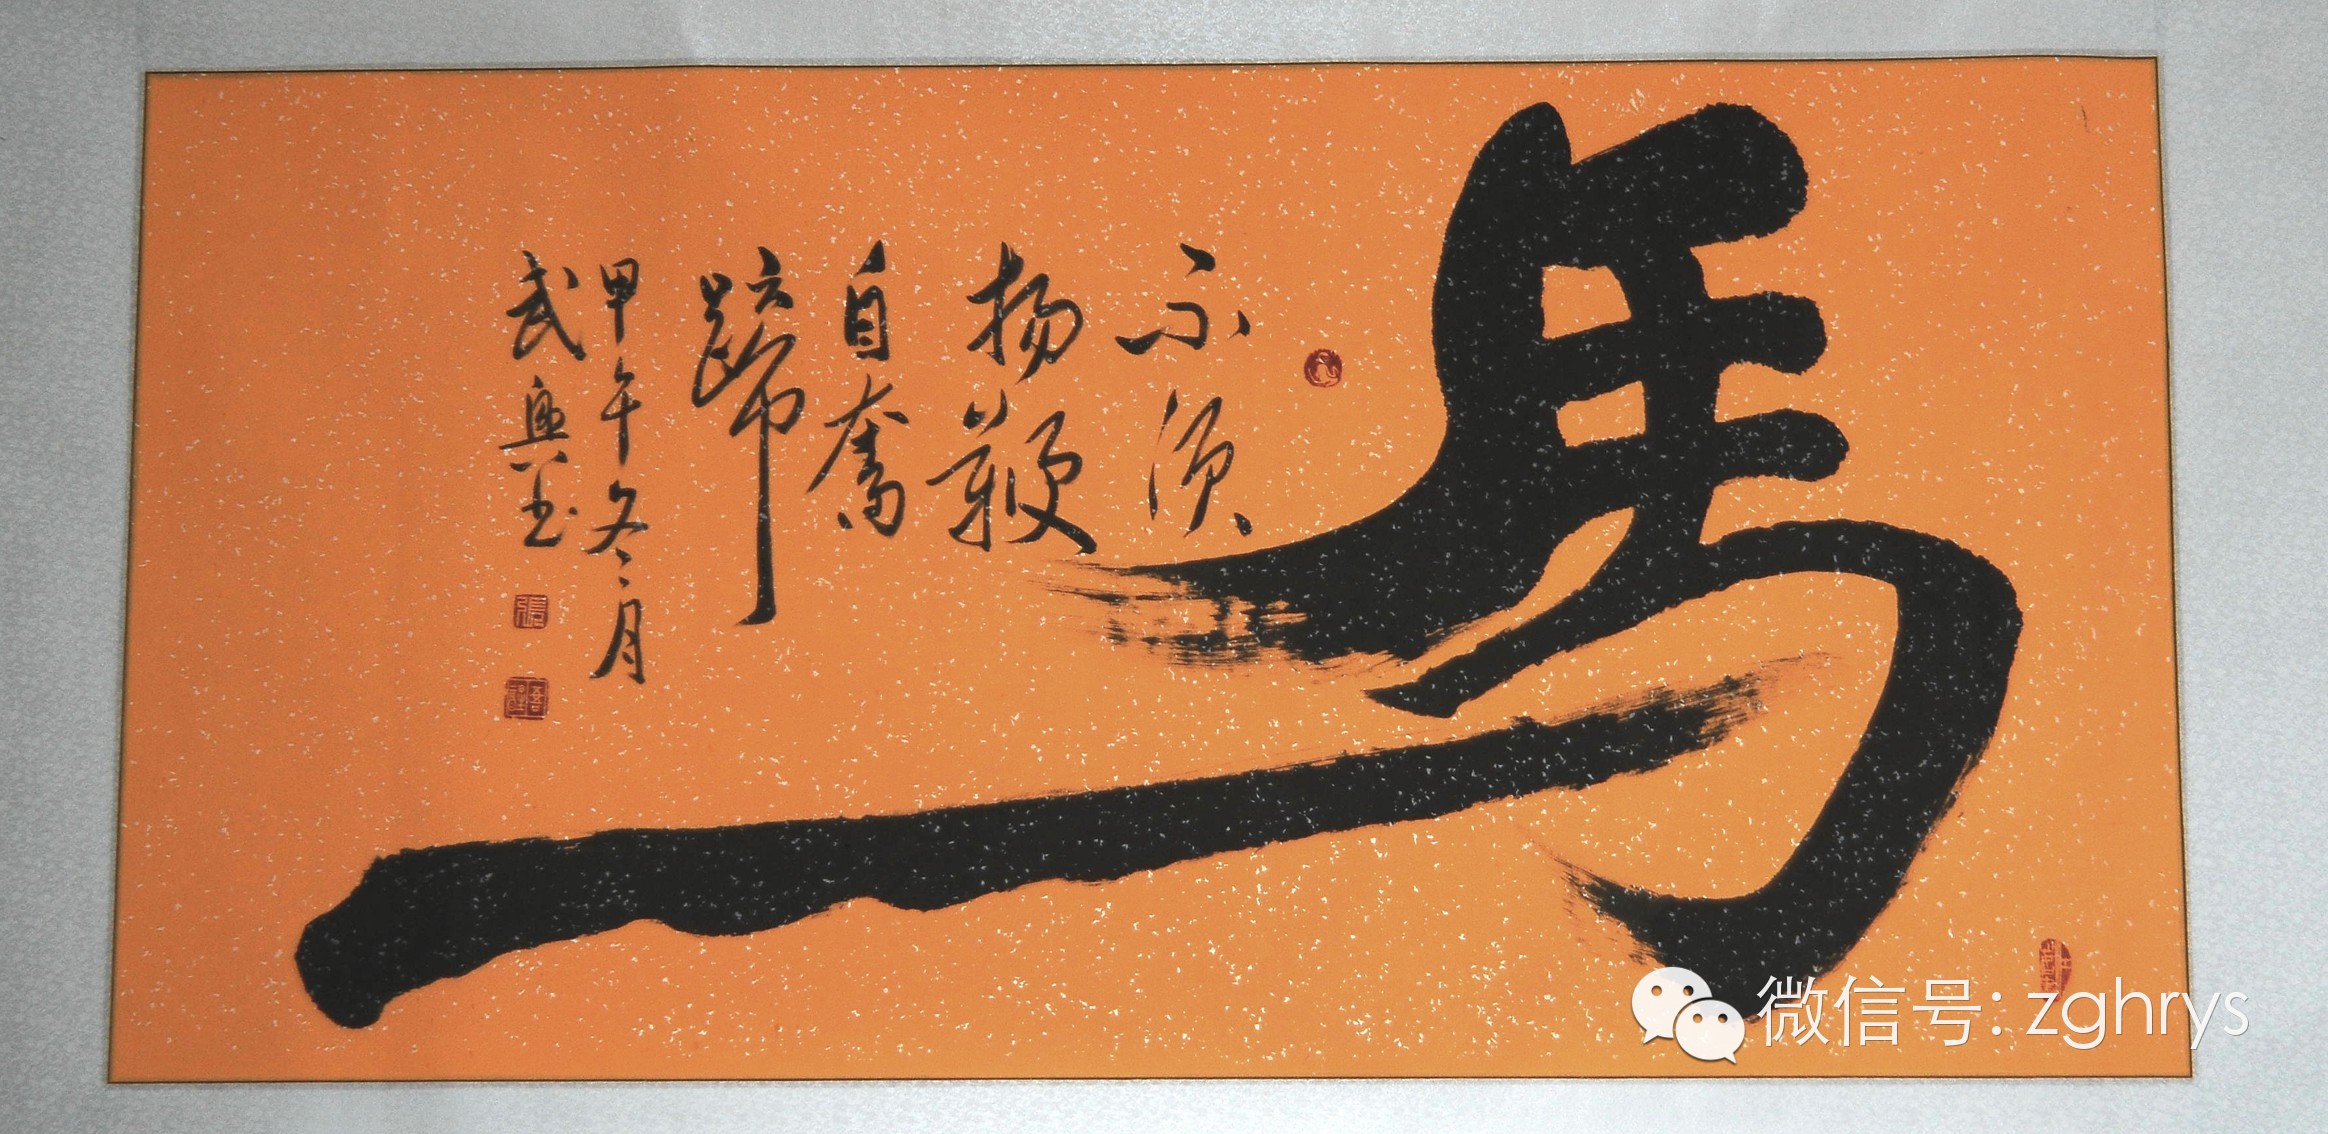 馬
不须
扬鞭
自奮
蹄
甲午冬月
武興书
張
微信号: zghrys